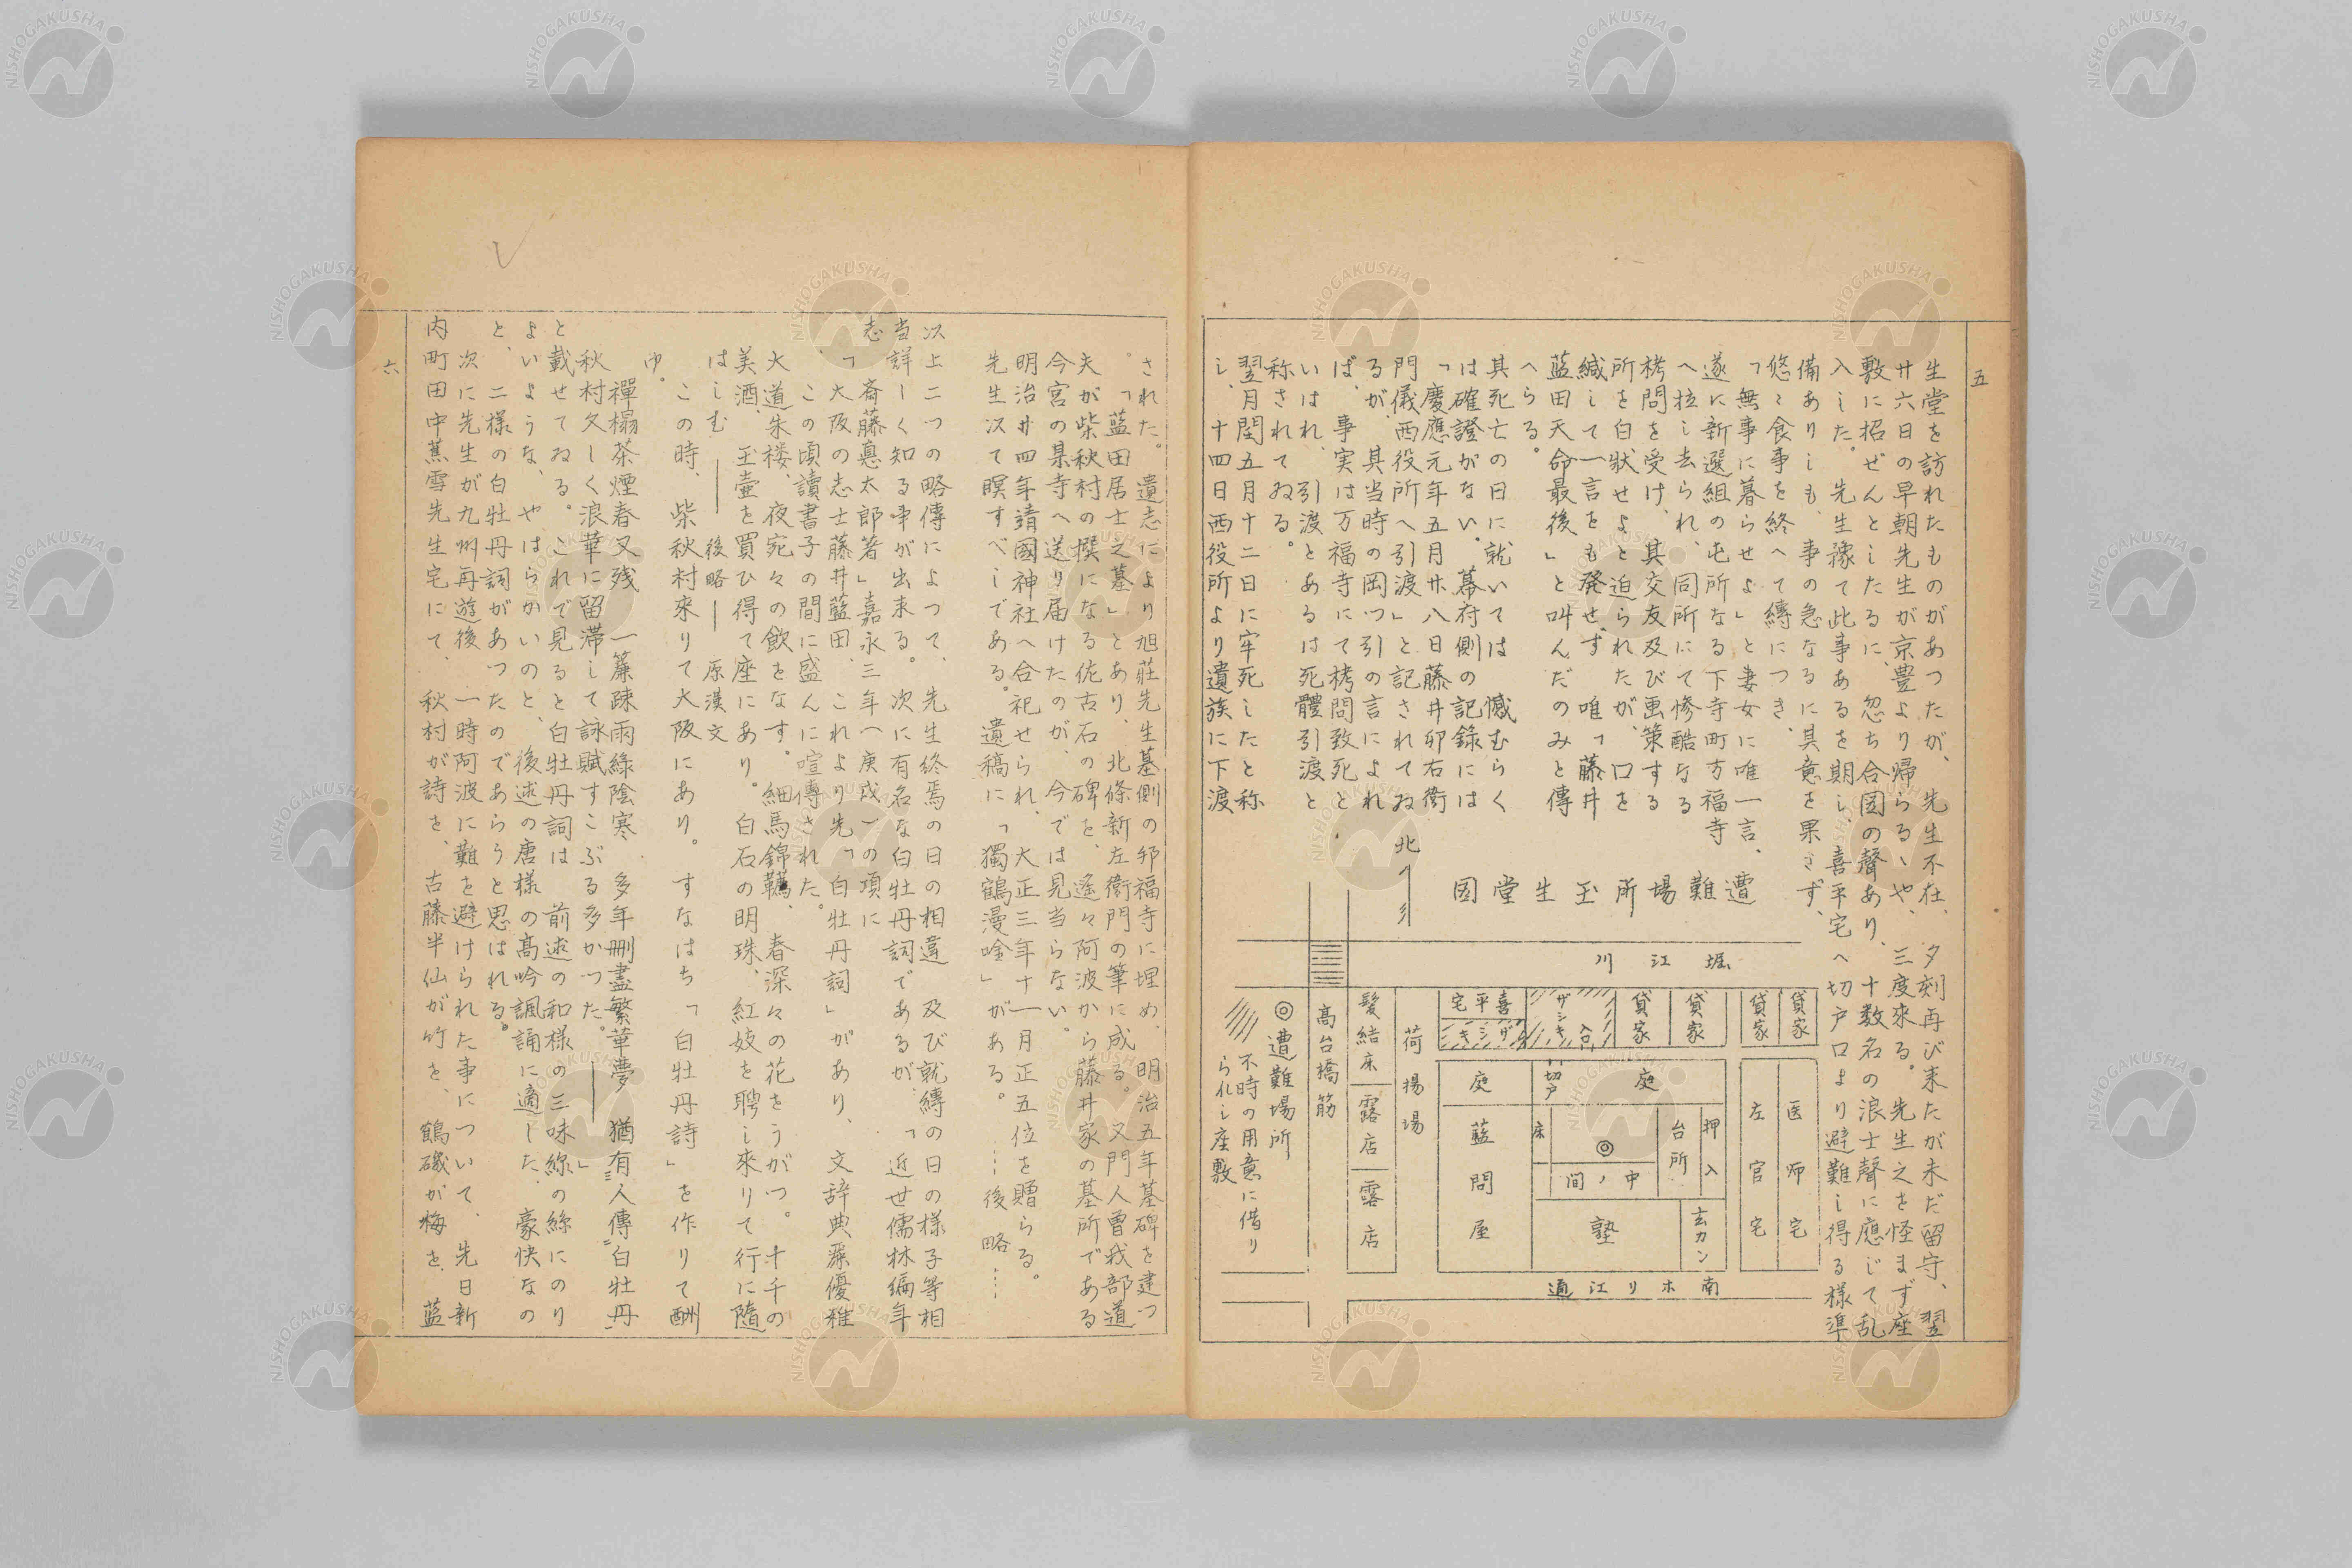 五
生堂を訪れたものがあつたが、先生不在、夕刻再び来たが未だ留守、翌
廿六日の早朝先生が京豊より帰らるゝや、三度來る。先生之を怪まず座
敷に招ぜんとしたるに、忽ち合図の聲あり、十数名の浪士聲に應じて乱
入した。先生豫て此事あるを期し、喜平宅へ切戸口より避難し得る様準
備ありしも、事の急なるに其意を果さず、
悠々食事を終へて縛につき、
「無事に暮らせよ」と妻女に唯一言、
遂に新選組の屯所なる下寺町万福寺
へ拉し去られ、同所にて惨酷なる
栲問を受け、其交友及び画策する
所を白状せよと迫られたが、口を
緘して一言をも発せず 唯「藤井
藍田天命最後」と叫んだのみと傳
へらる。
其死亡の日に就いては 憾むらく
は確證がない、幕府側の記録には
「慶應元年五月廿八日藤井卯右衛
門儀西役所へ引渡」と記されてゐ
るが、其当時の岡つ引の言によれ
ば、事実は万福寺にて栲問致死と
いはれ、引渡とあるは死體引渡と
称されてゐる。
翌月閏五月十二日に牢死したと称
し、十四日西役所より遺族に下渡
遭難場所玉生堂図
北
堀江川
貸家
貸家
貸家
貸家
ザシキ
入口
喜平宅
ザシキ
荷揚場
髪結床
露店
露店
高台橋筋
◎遭難場所
不時の用意に借り
られし座敷
庭
切戸
庭
藍問屋
床
◎
中ノ間
台所
押入
塾
玄カン
左官宅
医师宅
南ホリ江通
された。遺志により旭荘先生墓側の邦福寺に埋め、明治五年墓碑を建つ
。「藍田居士之墓」とあり、北條新左衛門の筆に成る。又門人曽我部道
夫が柴秋村の撰になる佐古石の碑を、遙々阿波から藤井家の墓所である
今宮の某寺へ送り届けたのが、今では見当らない。
明治廿四年靖國神社へ合祀せられ、大正三年十一月正五位を贈らる。
先生以て瞑すべしである。遺稿に「獨鶴漫唫」がある。……後略……
以上二つの略傳によつて、先生終焉の日の相違 及び就縛の日の様子等相
当詳しく知る事が出来る。次に有名な白牡丹詞であるが、「近世儒林編年
志
「斎藤悳太郎著」嘉永三年(庚戌)の項に
「大阪の志士藤井藍田、これより先「白牡丹詞」があり、文辞典藻優雅
、この頃讀書子の間に盛んに喧傳された。
大道朱楼、夜宛々の飲をなす。細馬錦韉、春深々の花をうがつ。十千の
美酒、玉壷を買ひ得て座にあり。白石の明珠、紅妓を聘し來りて行に隨
はしむ ――後略―― 原漢文
この時、柴秋村來りて大阪にあり。すなはち「白牡丹詩」を作りて酬
ゆ。
禪榻茶煙春又残 一簾疎雨綠陰寒 多年刪盡繁華夢 猶有人傳白牡丹
秋村久しく浪華に留滞して詠賦すこぶる多かつた。――」
と載せてゐる。これで見ると白牡丹詞は 前述の和様の三味線の絲にのり
よいような、やはらかいのと、後述の唐様の髙吟諷誦に適した、豪快なの
と、二様の白牡丹詞があつたのであらうと思はれる。
次に先生が九州再遊後、一時阿波に難を避けられた事について、先日新
内町田中蕉雪先生宅にて、秋村が詩を、古藤半仙が竹を、鶴磯が梅を、藍
六
NISHOGAKUSHA